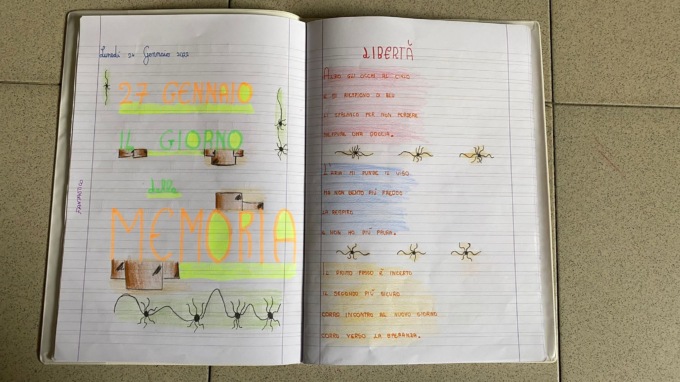 Lunedì 27 Gennaio 2025
27 GENNAIO
IL GIORNO
della
MEMORIA
FANTASTICO
LIBERTÀ
APRO GLI OCCHI AL CIELO
LI SPALANCO PER NON PERDERE
NEMMENO UNA GOCCIA.
L'ARIA MI PUNGE IL VISO
MA NON SENTO PIÙ FREDDO
LA RESPIRO
E NON HO PIÙ PAURA.
IL PRIMO PASSO È INCERTO
IL SECONDO PIÙ SICURO
CORRO INCONTRO AL NUOVO GIORNO
CORRO VERSO LA SPERANZA.